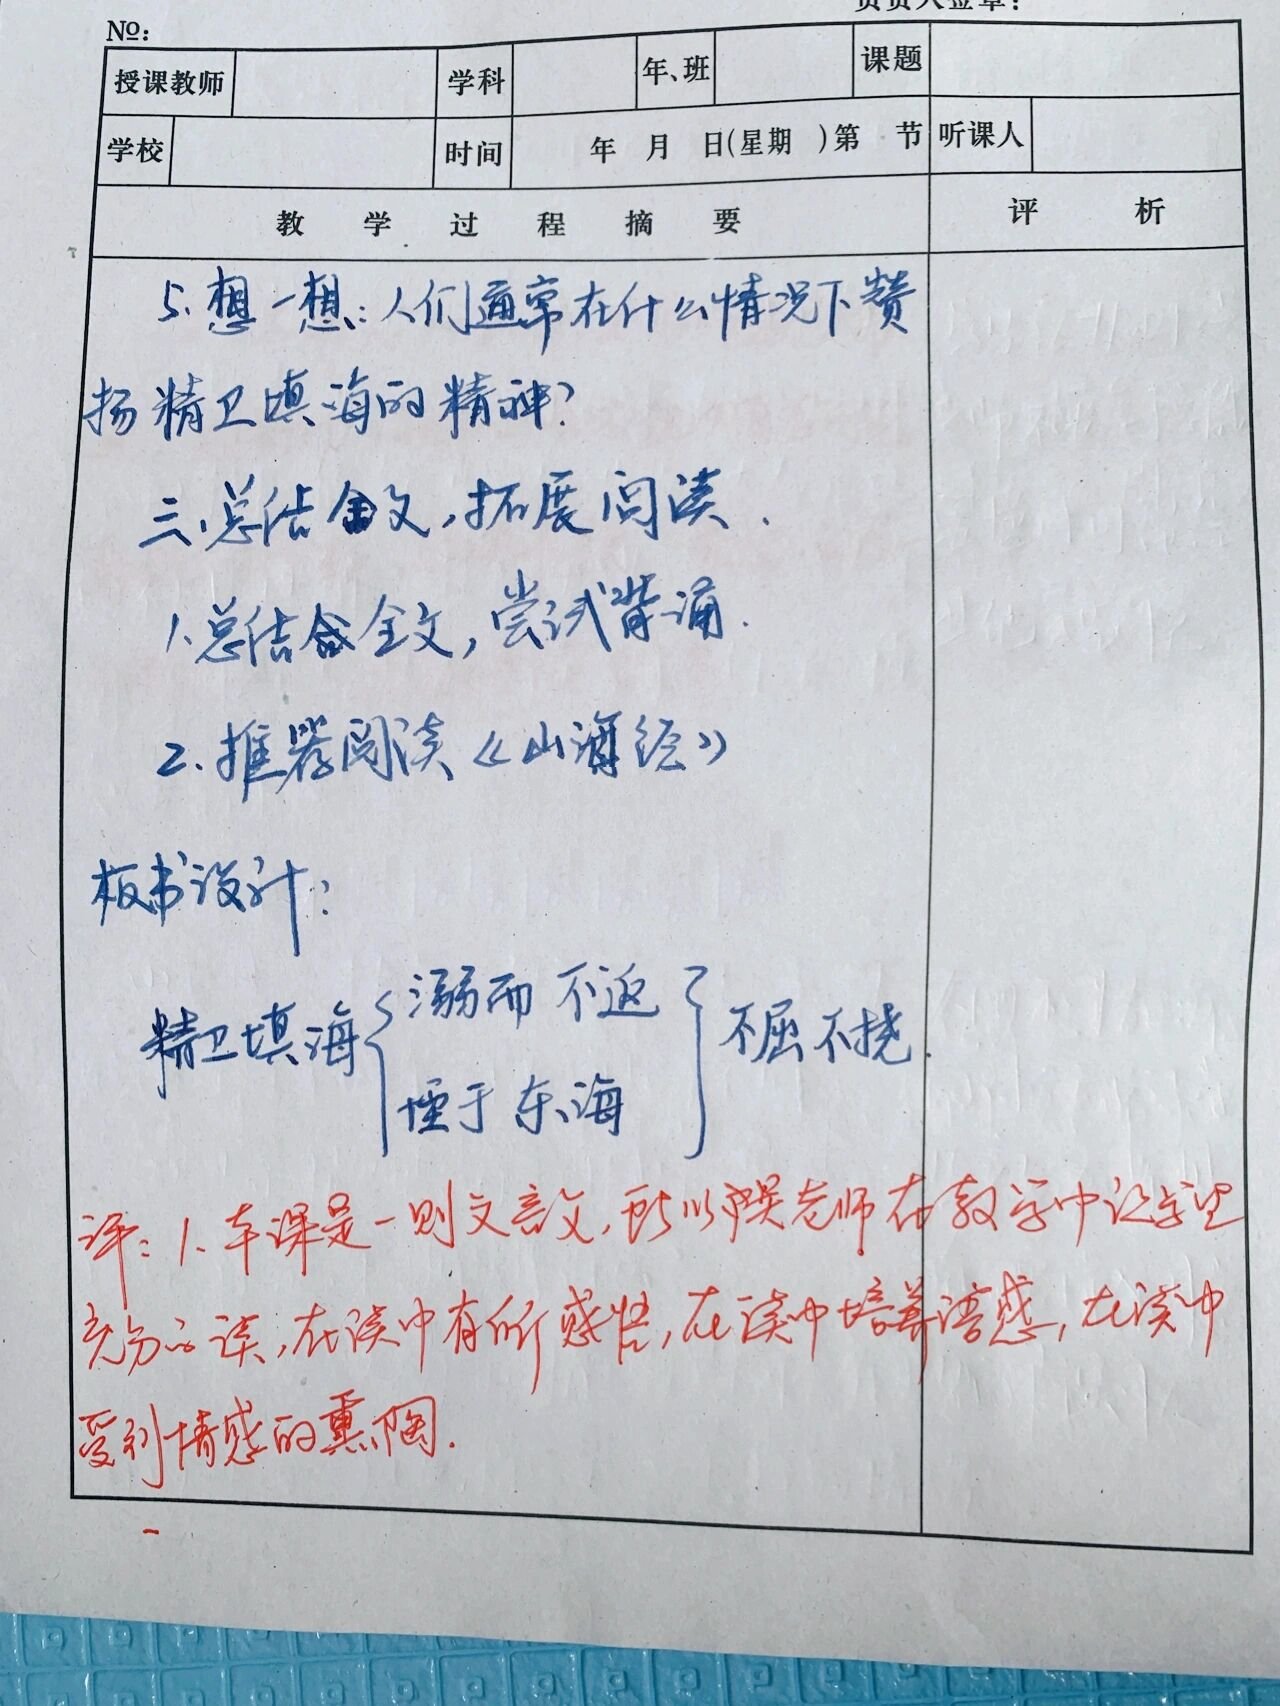 负责人签章:
№:
授课教师 学科 年、班 课题
学校 时间 年 月 日(星期 )第 节 听课人
教 学 过 程 摘 要 评 析
5.想一想:人们通常在什么情况下赞
扬精卫填海的精神?
三、总结全文,拓展阅读.
1.总结全文,尝试背诵.
2.推荐阅读《山海经》
板书设计:
精卫填海 { 溺而不返 } 不屈不挠
堙于东海
评:1.本课是一则文言文,所以老师在教学中让学生
充分的读,在读中有所感悟,在读中培养语感,在读中
受到情感的熏陶.